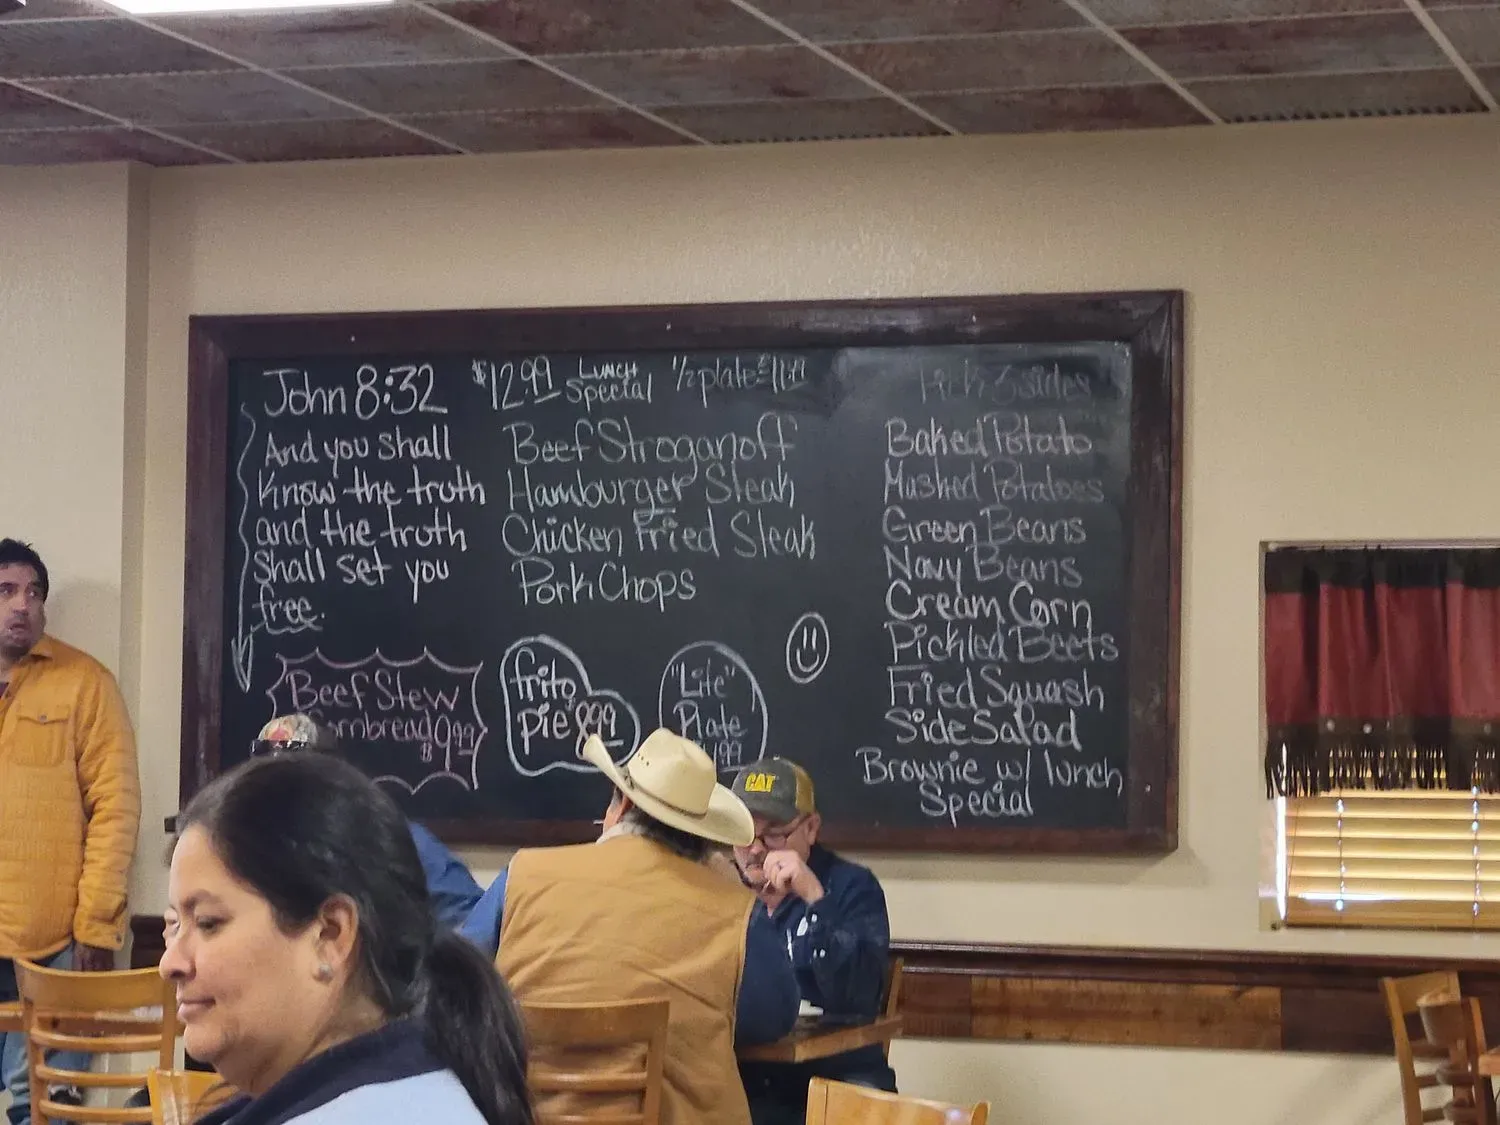 John 8:32
And you shall
know the truth
and the truth
shall set you
free.
$12.99 LUNCH Special 1/2 plate $11.99
Beef Stroganoff
Hamburger Steak
Chicken Fried Steak
Pork Chops
Pick 3 sides
Baked Potato
Mashed Potatoes
Green Beans
Navy Beans
Cream Corn
Pickled Beets
Fried Squash
Side Salad
Brownie w/ lunch
Special
Beef Stew
ornbread $9.99
frito
pie 8.99
"Lite"
Plate
CAT